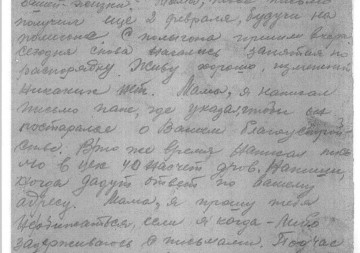 Мама, твоё письмо
получил ещё 2 февраля, будучи на
полигоне. С полигона пришли вчера,
сегодня снова начались занятия по
распорядку. Живу хорошо, изменений
никаких нет. Мама, я написал
письмо папе, где указал, чтобы он
постарался о Вашем благоустрой-
стве. В то же время написал
насчёт дров. Напиши,
когда дадут ответ по вашему
адресу. Мама, я прошу тебя
не обижаться, если я когда-либо
задерживаюсь с письмами. Подчас